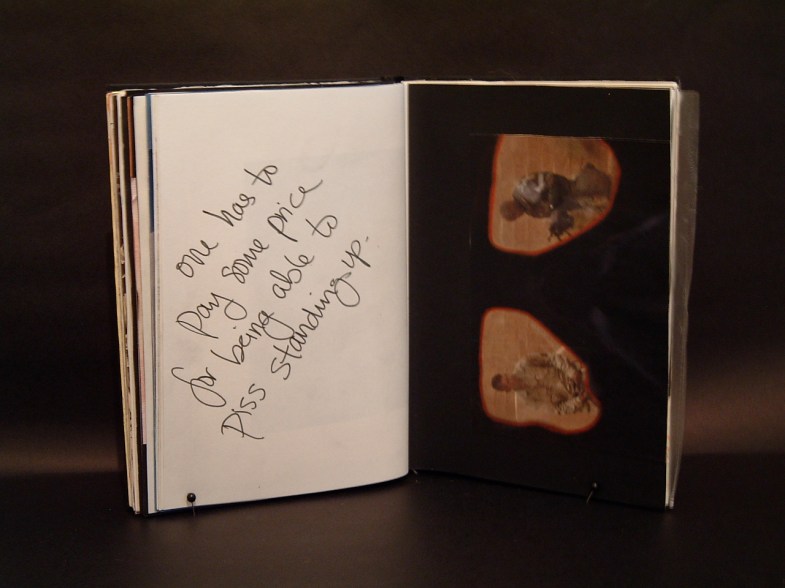 one has to
pay some price
for being able to
piss standing up.